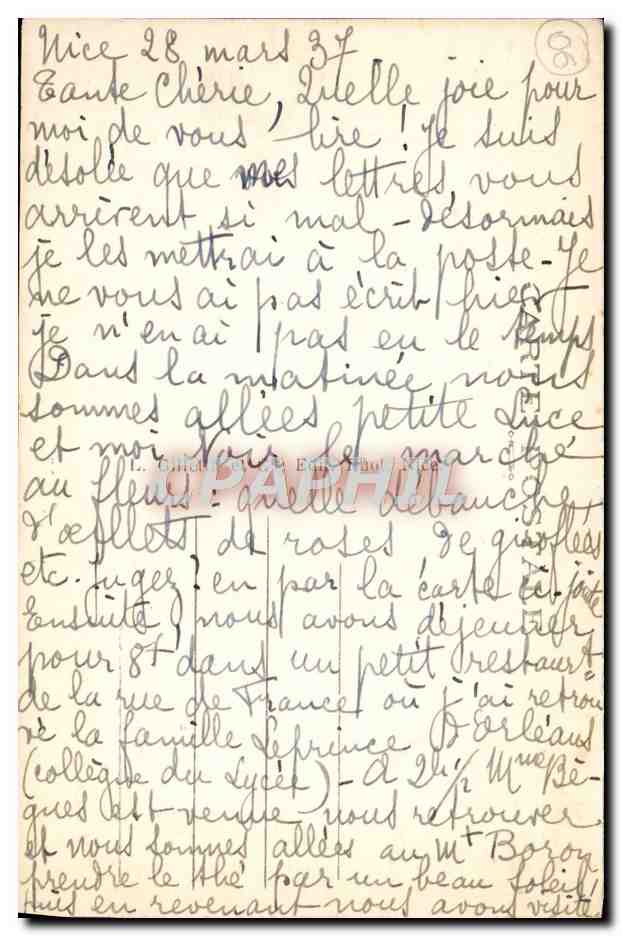 Nice 28 mars 37
Tante Chérie, Quelle joie pour
moi de vous lire ! Je suis
désolée que mes lettres vous
arrivent si mal - désormais
je les mettrai à la poste - Je
ne vous ai pas écrit hier
je n'en ai pas eu le temps
Dans la matinée nous
sommes allées petite Luce
et moi voir le marché
au fleurs : quelle débauche
d'œillets de roses de giroflées
etc. jugez en par la carte ci-jointe
Ensuite nous avons déjeuner
pour 8f dans un petit restaurt
de la rue de France où j'ai retrou
vé la famille Lefrince d'Orléans
(collègue du Lycée) - A 2h 1/2 Mme Bé-
gues est venue nous retrouver
et nous sommes allées au Mt Boron
prendre le thé par un beau soleil !
puis en revenant nous avons visité
CARTE POSTALE
CPAPHIL
90